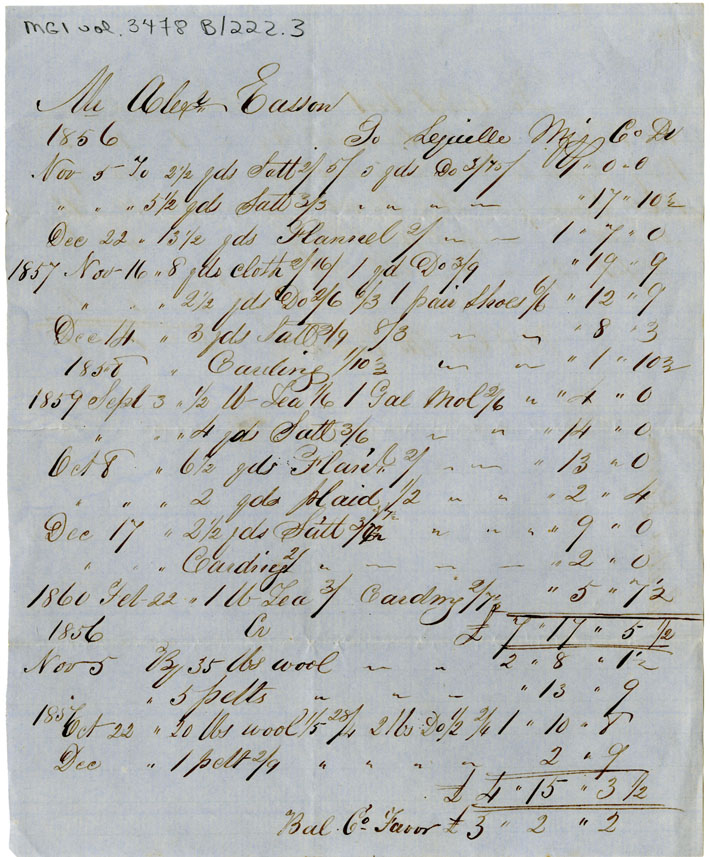 MG1 vol. 3478 B/222.3
Mr Alexr Easson
1856 To Lequille Mf'g Co Dr
Nov 5 To 2½ yds Satt 2/ 5/ 5 yds Do 3/ " 0 " 0
" " " 5½ yds Satt 3/3 " " " " " 17 " 10½
Dec 22 " 13½ yds Flannel 2/ " " 1 " 7 " 0
1857 Nov 16 " 8 yds cloth 2/ 16/ 1 yd Do 3/9 " 19 " 9
" " " 2½ yds Do 2/6 6/3 1 pair Shoes 6/6 " 12 " 9
Dec 14 " 3 yds Satt 2/9 8/3 " " " 8 " 3
1858 " Carding 1/10½ " " " 1 " 10½
1859 Sept 3 " ½ lb Tea 1/6 1 Gal Mol 2/6 " " 4 " 0
" " 4 yds Satt 3/6 " " " 14 " 0
Oct 8 " 6½ yds Flan'l 2/ " " " 13 " 0
" " " 2 yds plaid 1/2 " " " 2 " 4
Dec 17 " 2½ yds Satt " " " 9 " 0
" " Carding 2/ " " " " " 2 " 0
1860 Feb 22 " 1 lb Tea 3/ Carding 2/7½ " 5 " 7½
1856 Cr £ 7 " 17 " 5 ½
Nov 5 By 35 lbs wool " " 2 " 8 " 1½
" 5 pelts " " " " 13 " 9
Oct 22 " 20 lbs wool 1/5 28/4 2 lbs Do 1/2 2/4 1 " 10 " 8
Dec " 1 pelt 2/9 " " " " 2 " 9
£ 4 " 15 " 3 ½
Bal Co Favor £ 3 " 2 " 2